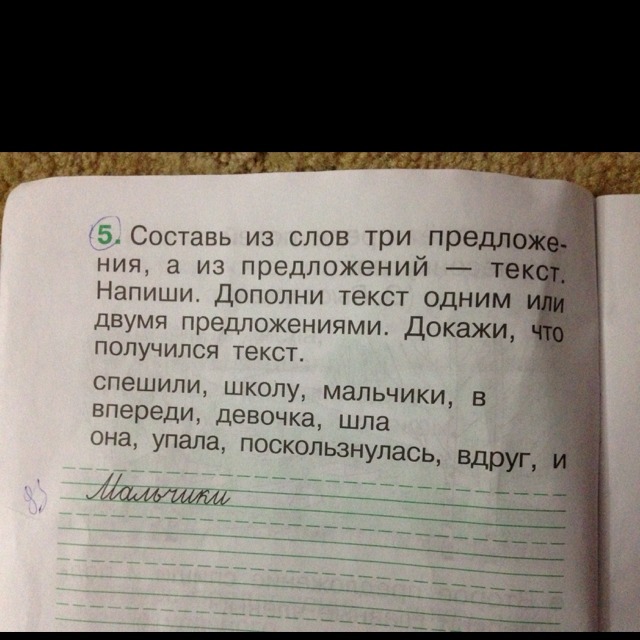 5. Составь из слов три предложе-
ния, а из предложений — текст.
Напиши. Дополни текст одним или
двумя предложениями. Докажи, что
получился текст.
спешили, школу, мальчики, в
впереди, девочка, шла
она, упала, поскользнулась, вдруг, и
Мальчики